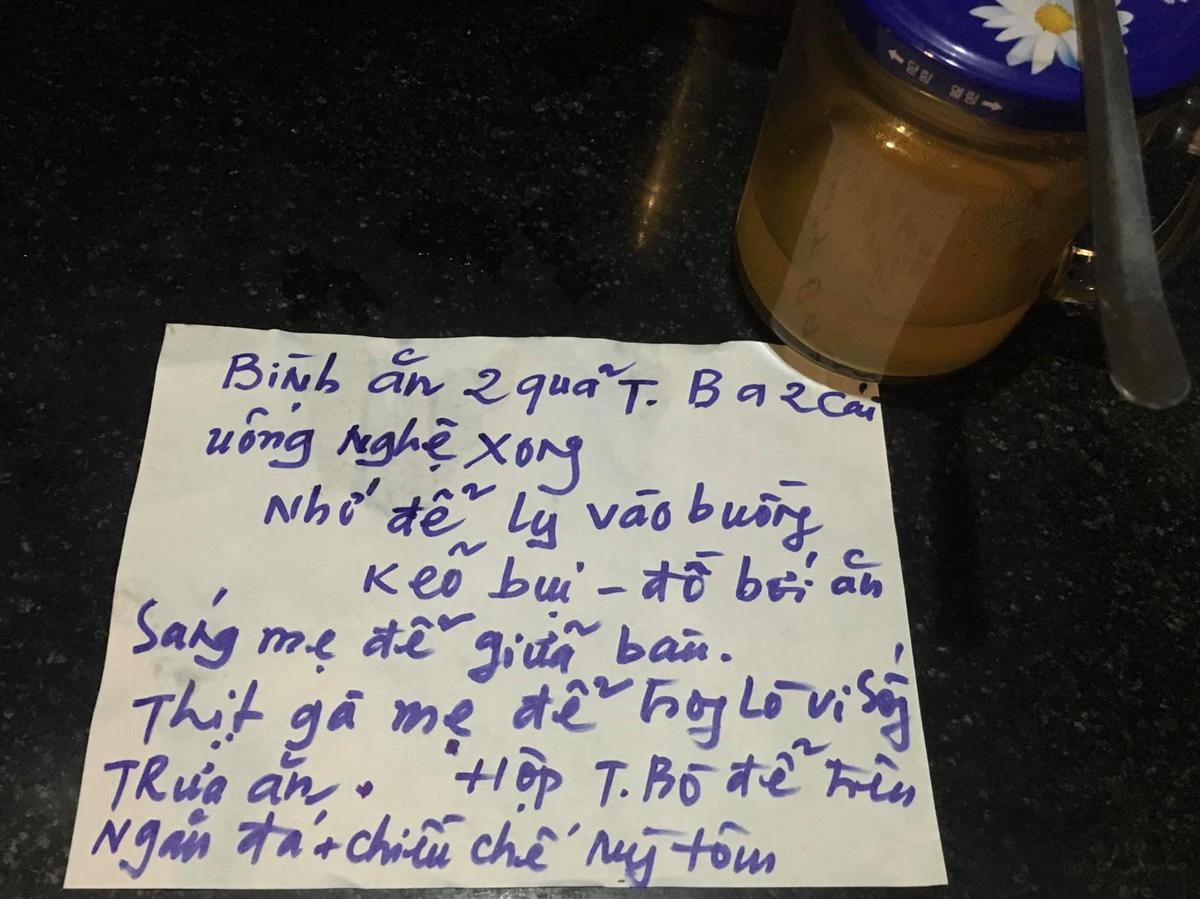 ← 닫힘
열림 →
Bình ăn 2 quả T. Ba 2 cái
uống Nghệ xong
Nhớ để ly vào buồng
Kẻo bụi – đồ bới ăn
Sáng mẹ để giữa bàn.
Thịt gà mẹ để trong Lò vi sóng
TRưa ăn. Hộp T. Bò để trên
Ngăn đá + chiều chế mỳ tôm